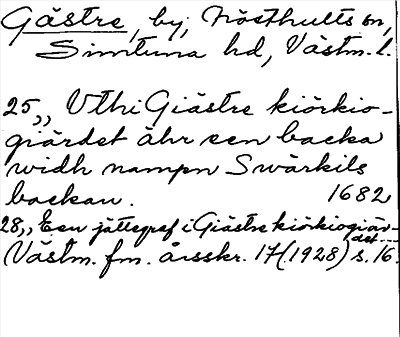 Gästre, by, Nösthults sn,
Simtuna hd, Västm. l.
25,, Vthi Giästre kiörkio-
giärdet ähr een backa
widh nampn Swärkils
backan. 1682
28,, Een jättegraf i Giästre kiörkiogiär-
det ---
Västm. fm. årsskr. 17 (1928) s. 16.